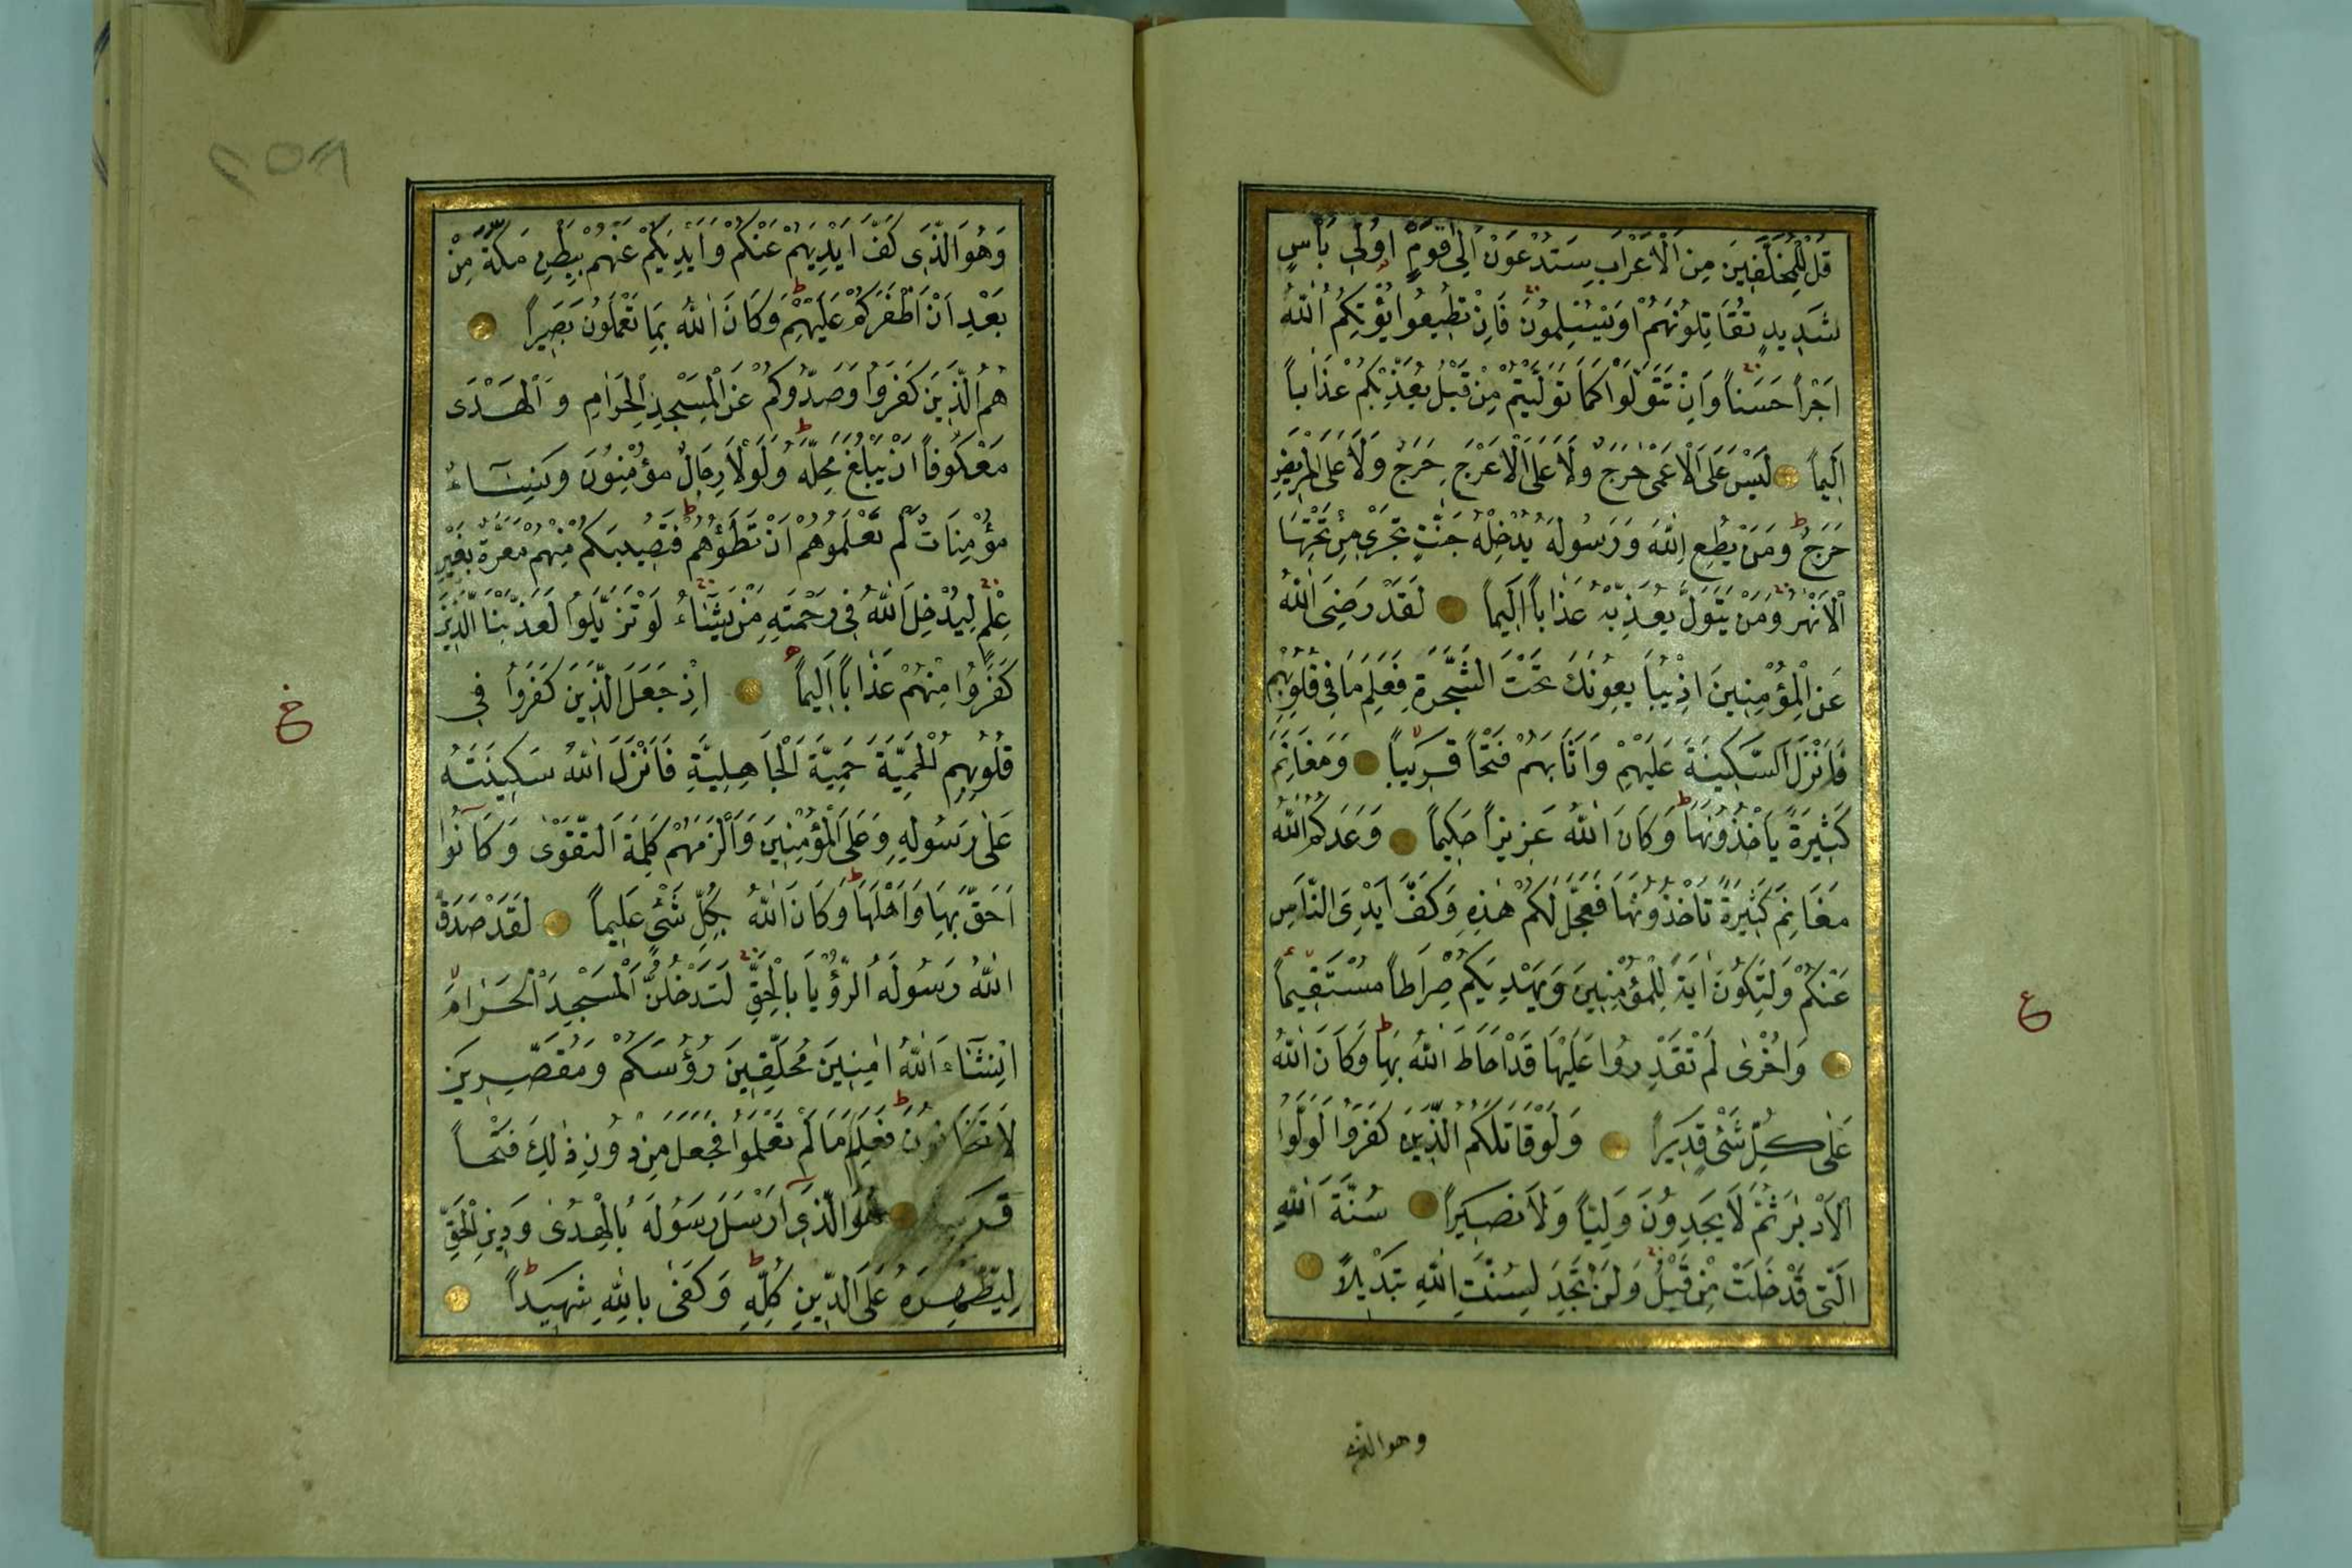 قُلْ لِلْمُخَلَّفِينَ مِنَ الْاَعْرَابِ سَتُدْعَوْنَ اِلٰى قَوْمٍ اُولِى بَأْسٍ
شَدِيدٍ تُقَاتِلُونَهُمْ اَوْ يُسْلِمُونَ فَاِنْ تُطِيعُوا يُؤْتِكُمُ اللّٰهُ
اَجْرًا حَسَنًا وَاِنْ تَتَوَلَّوْا كَمَا تَوَلَّيْتُمْ مِنْ قَبْلُ يُعَذِّبْكُمْ عَذَابًا
اَلِيمًا لَيْسَ عَلَى الْاَعْمٰى حَرَجٌ وَلَا عَلَى الْاَعْرَجِ حَرَجٌ وَلَا عَلَى الْمَرِيضِ
حَرَجٌ وَمَنْ يُطِعِ اللّٰهَ وَرَسُولَهُ يُدْخِلْهُ جَنّٰتٍ تَجْرِى مِنْ تَحْتِهَا
الْاَنْهٰرُ وَمَنْ يَتَوَلَّ يُعَذِّبْهُ عَذَابًا اَلِيمًا لَقَدْ رَضِىَ اللّٰهُ
عَنِ الْمُؤْمِنِينَ اِذْ يُبَايِعُونَكَ تَحْتَ الشَّجَرَةِ فَعَلِمَ مَا فِى قُلُوبِهِمْ
فَاَنْزَلَ السَّكِينَةَ عَلَيْهِمْ وَاَثَابَهُمْ فَتْحًا قَرِيبًا وَمَغَانِمَ
كَثِيرَةً يَأْخُذُونَهَا وَكَانَ اللّٰهُ عَزِيزًا حَكِيمًا وَعَدَكُمُ اللّٰهُ
مَغَانِمَ كَثِيرَةً تَأْخُذُونَهَا فَعَجَّلَ لَكُمْ هٰذِهِ وَكَفَّ اَيْدِىَ النَّاسِ
عَنْكُمْ وَلِتَكُونَ اٰيَةً لِلْمُؤْمِنِينَ وَيَهْدِيَكُمْ صِرَاطًا مُسْتَقِيمًا
وَاُخْرٰى لَمْ تَقْدِرُوا عَلَيْهَا قَدْ اَحَاطَ اللّٰهُ بِهَا وَكَانَ اللّٰهُ
عَلٰى كُلِّ شَىْءٍ قَدِيرًا وَلَوْ قَاتَلَكُمُ الَّذِينَ كَفَرُوا لَوَلَّوُا
الْاَدْبٰرَ ثُمَّ لَا يَجِدُونَ وَلِيًّا وَلَا نَصِيرًا سُنَّةَ اللّٰهِ
الَّتِى قَدْ خَلَتْ مِنْ قَبْلُ وَلَنْ تَجِدَ لِسُنَّتِ اللّٰهِ تَبْدِيلًا
ع
وهو الذى
٢٥٨
وَهُوَ الَّذِى كَفَّ اَيْدِيَهُمْ عَنْكُمْ وَاَيْدِيَكُمْ عَنْهُمْ بِبَطْنِ مَكَّةَ مِنْ
بَعْدِ اَنْ اَظْفَرَكُمْ عَلَيْهِمْ وَكَانَ اللّٰهُ بِمَا تَعْمَلُونَ بَصِيرًا
هُمُ الَّذِينَ كَفَرُوا وَصَدُّوكُمْ عَنِ الْمَسْجِدِ الْحَرَامِ وَالْهَدْىَ
مَعْكُوفًا اَنْ يَبْلُغَ مَحِلَّهُ وَلَوْلَا رِجَالٌ مُؤْمِنُونَ وَنِسَاءٌ
مُؤْمِنَاتٌ لَمْ تَعْلَمُوهُمْ اَنْ تَطَؤُهُمْ فَتُصِيبَكُمْ مِنْهُمْ مَعَرَّةٌ بِغَيْرِ
عِلْمٍ لِيُدْخِلَ اللّٰهُ فِى رَحْمَتِهِ مَنْ يَشَاءُ لَوْ تَزَيَّلُوا لَعَذَّبْنَا الَّذِينَ
كَفَرُوا مِنْهُمْ عَذَابًا اَلِيمًا اِذْ جَعَلَ الَّذِينَ كَفَرُوا فِى
قُلُوبِهِمُ الْحَمِيَّةَ حَمِيَّةَ الْجَاهِلِيَّةِ فَاَنْزَلَ اللّٰهُ سَكِينَتَهُ
عَلٰى رَسُولِهِ وَعَلَى الْمُؤْمِنِينَ وَاَلْزَمَهُمْ كَلِمَةَ التَّقْوٰى وَكَانُوا
اَحَقَّ بِهَا وَاَهْلَهَا وَكَانَ اللّٰهُ بِكُلِّ شَىْءٍ عَلِيمًا لَقَدْ صَدَقَ
اللّٰهُ رَسُولَهُ الرُّؤْيَا بِالْحَقِّ لَتَدْخُلُنَّ الْمَسْجِدَ الْحَرَامَ
اِنْ شَاءَ اللّٰهُ اٰمِنِينَ مُحَلِّقِينَ رُؤُسَكُمْ وَمُقَصِّرِينَ
لَا تَخَافُونَ فَعَلِمَ مَا لَمْ تَعْلَمُوا فَجَعَلَ مِنْ دُونِ ذٰلِكَ فَتْحًا
قَرِيبًا هُوَ الَّذِى اَرْسَلَ رَسُولَهُ بِالْهُدٰى وَدِينِ الْحَقِّ
لِيُظْهِرَهُ عَلَى الدِّينِ كُلِّهِ وَكَفٰى بِاللّٰهِ شَهِيدًا